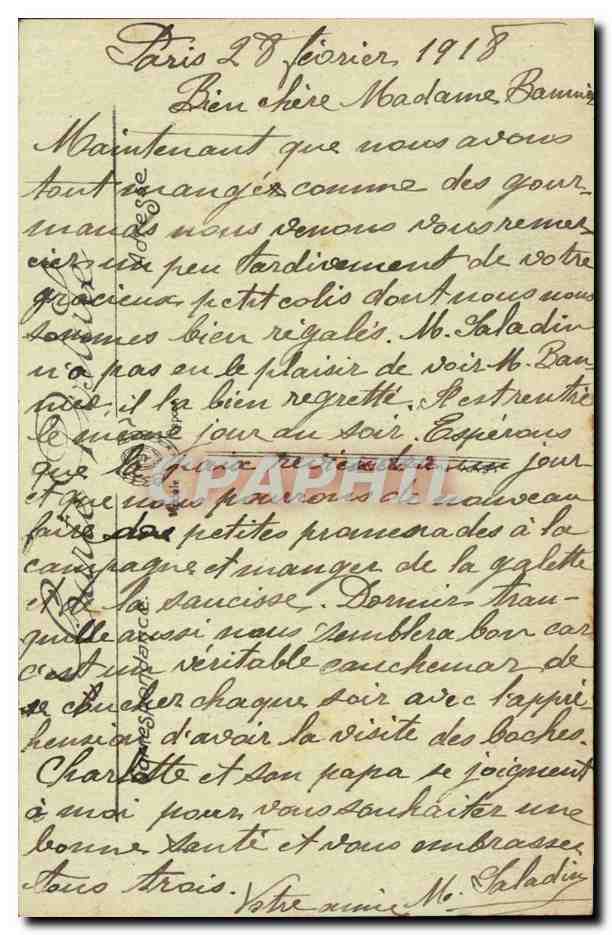 Paris 28 février 1918
Bien chère Madame
Maintenant que nous avons
tout mangé comme des gour-
mands nous venons vous remer
cier un peu tardivement de votre
gracieux petit colis dont nous nous
sommes bien régalés. M. Saladin
n'a pas eu le plaisir de voir M. Ban-
nier, il la bien regretté. Il est rentré
le même jour au soir. Espérons
que la paix reviendra un jour
et que nous pourrons de nouveau
faire des petites promenades à la
campagne et manger de la galette
et de la saucisse. Dormir tran-
quille aussi nous semblera bon car
c'est un véritable cauchemar de
se coucher chaque soir avec l'appré-
hension d'avoir la visite des boches.
Charlotte et son papa se joignent
à moi pour vous souhaiter une
bonne santé et vous embrasser
tous trois.
Votre amie M. Saladin
Carte Postale
Correspondance.
Adresse
CPAPHIL